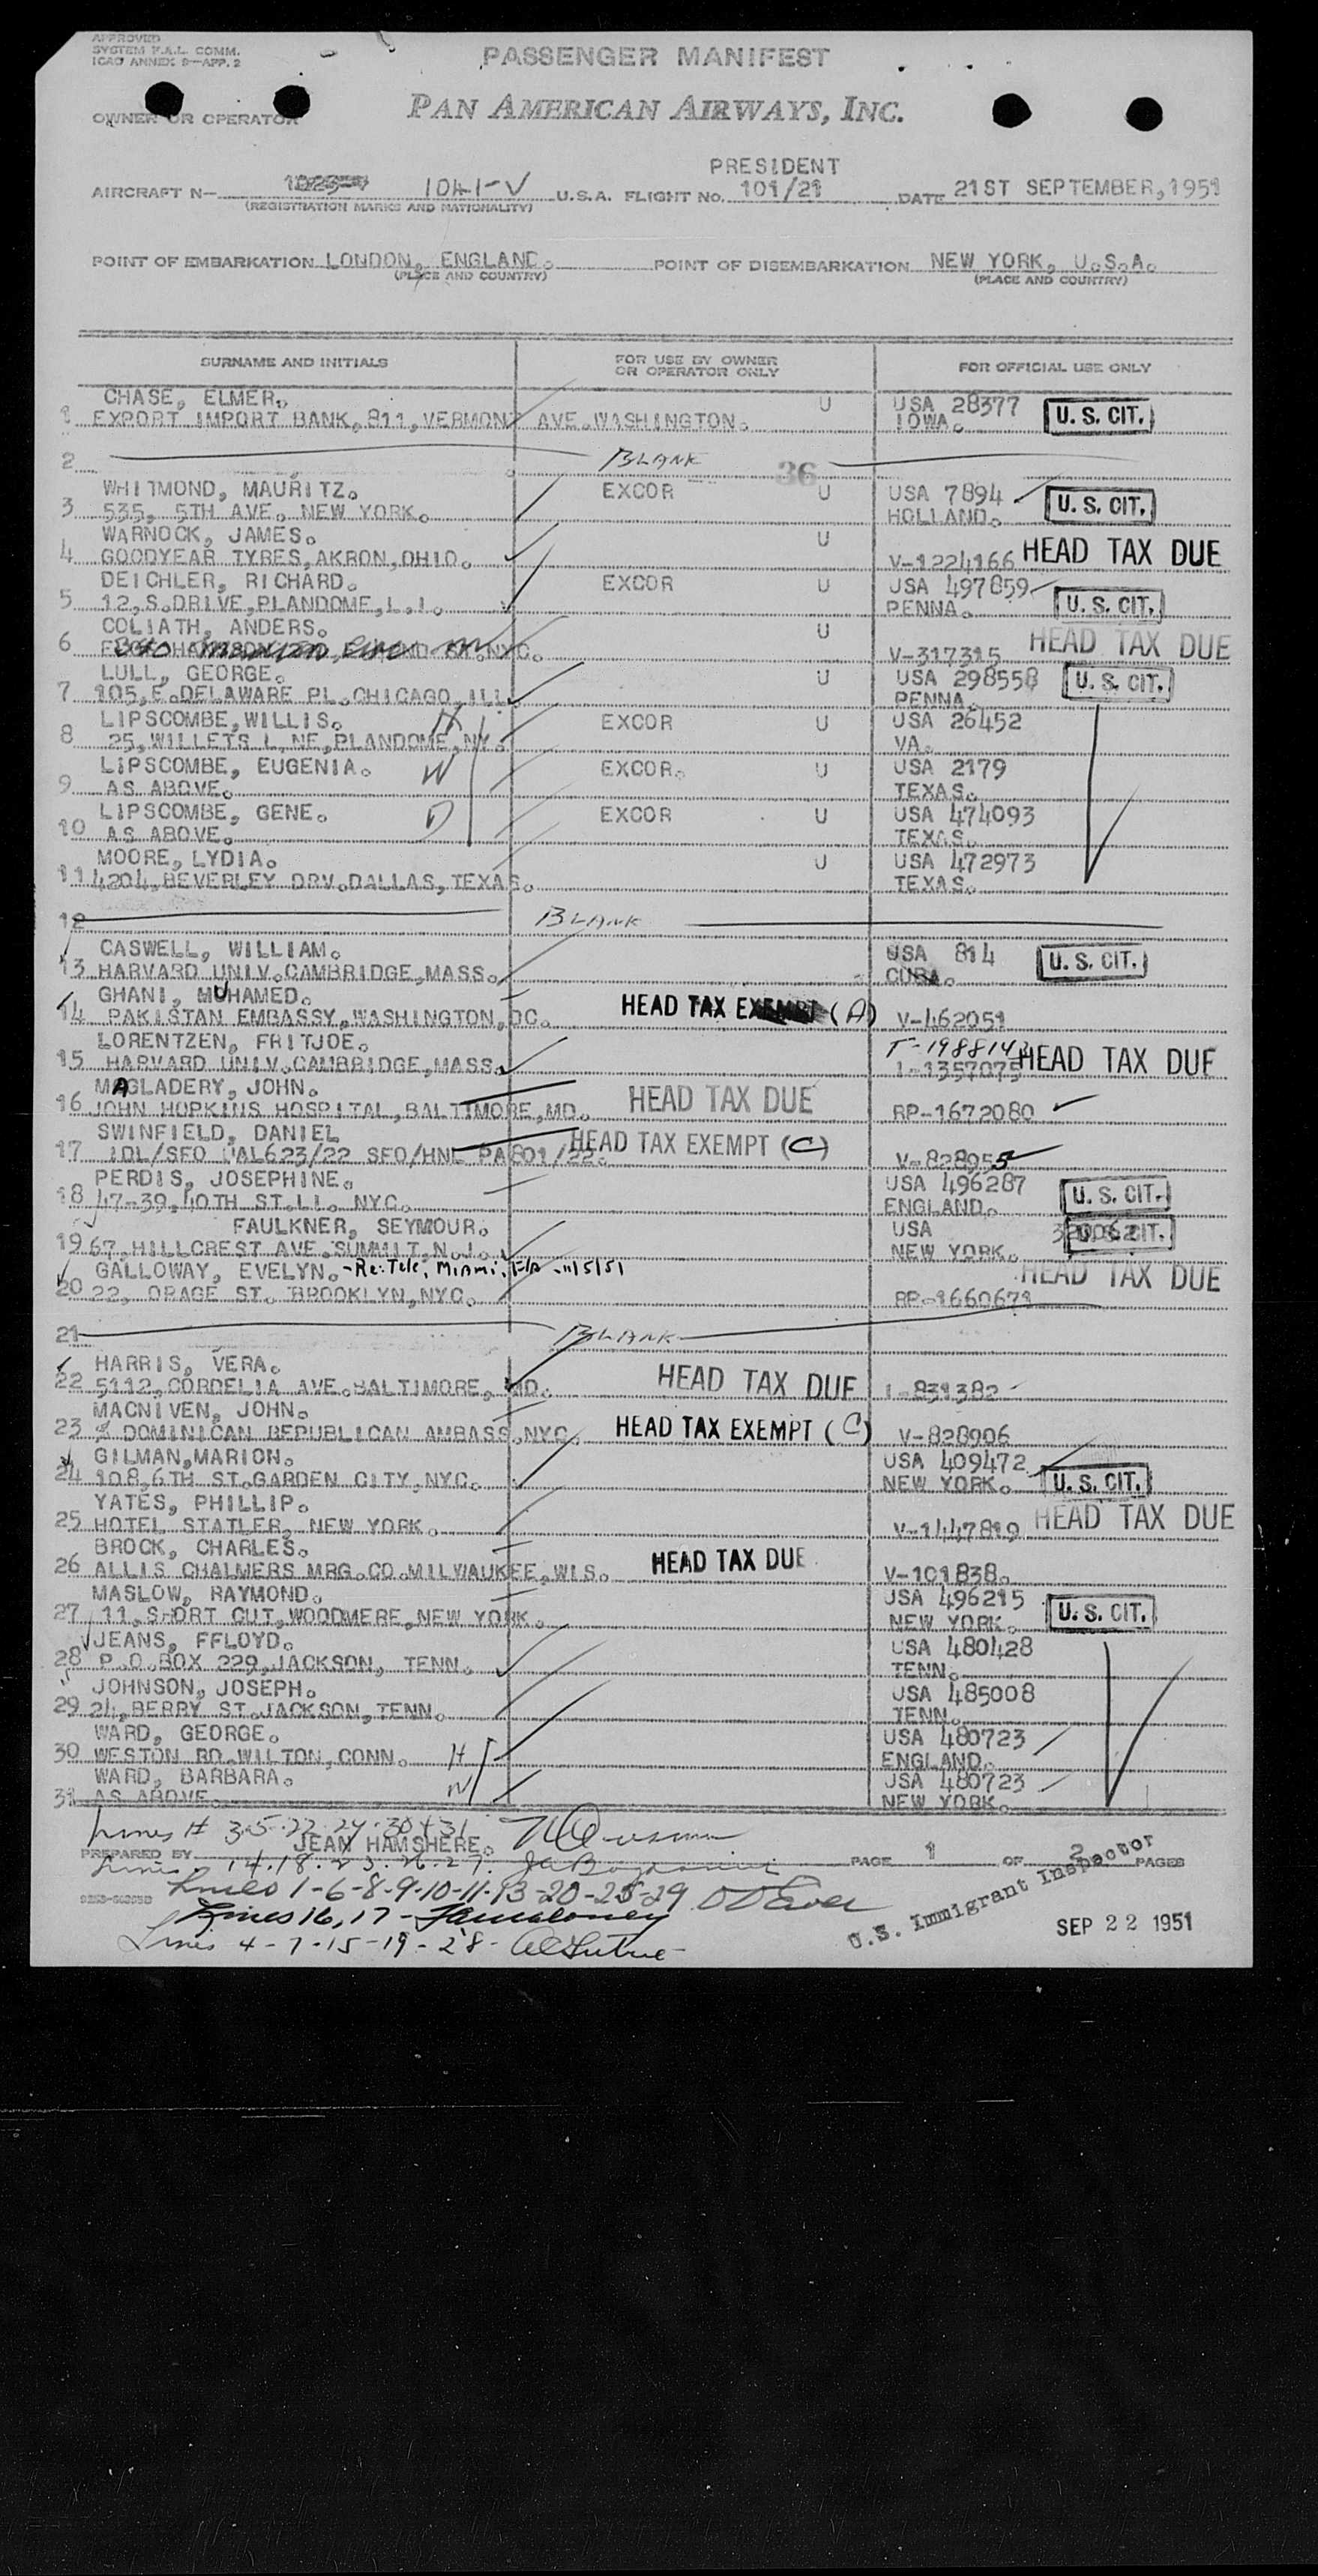 APPROVED
SYSTEM F.A.L. COMM.
ICAO ANNEX 9—APP. 2
PASSENGER MANIFEST
OWNER OR OPERATOR
PAN AMERICAN AIRWAYS, INC.
PRESIDENT
AIRCRAFT N— 1041-V U.S.A. FLIGHT NO. 101/21 DATE 21ST SEPTEMBER, 1951
(REGISTRATION MARKS AND NATIONALITY)
POINT OF EMBARKATION LONDON, ENGLAND. POINT OF DISEMBARKATION NEW YORK, U.S.A.
(PLACE AND COUNTRY) (PLACE AND COUNTRY)
SURNAME AND INITIALS FOR USE BY OWNER OR OPERATOR ONLY FOR OFFICIAL USE ONLY
CHASE, ELMER. U USA 28377
1 EXPORT IMPORT BANK, 811, VERMONT AVE. WASHINGTON. IOWA. U. S. CIT.
2 BLANK 36
WHITMOND, MAURITZ. EXCOR U USA 7894
3 535, 5TH AVE. NEW YORK. HOLLAND. U. S. CIT.
WARNOCK, JAMES. U
4 GOODYEAR TYRES, AKRON, OHIO. V-1224166 HEAD TAX DUE
DEICHLER, RICHARD. EXCOR U USA 497859
5 12, S. DRIVE, PLANDOME, L.I. PENNA. U. S. CIT.
COLIATH, ANDERS. U
6 NYC. V-317315 HEAD TAX DUE
LULL, GEORGE. U USA 298558 U. S. CIT.
7 105, E. DELAWARE PL. CHICAGO, ILL. PENNA.
LIPSCOMBE, WILLIS. H EXCOR U USA 26452
8 25, WILLETS L. NE, PLANDOME, NY. VA.
LIPSCOMBE, EUGENIA. W EXCOR. U USA 2179
9 AS ABOVE. TEXAS.
LIPSCOMBE, GENE. D EXCOR U USA 474093
10 AS ABOVE. TEXAS.
MOORE, LYDIA. U USA 472973
11 4204, BEVERLEY DRV. DALLAS, TEXAS. TEXAS.
12 BLANK
CASWELL, WILLIAM. USA 814
13 HARVARD UNIV. CAMBRIDGE, MASS. CUBA. U. S. CIT.
GHANI, MUHAMED. HEAD TAX EXEMPT (A)
14 PAKISTAN EMBASSY, WASHINGTON, DC. V-462051
LORENTZEN, FRITJOE. T-1988143
15 HARVARD UNIV. CAMBRIDGE, MASS. I-1357075 HEAD TAX DUE
MAGLADERY, JOHN. HEAD TAX DUE
16 JOHN HOPKINS HOSPITAL, BALTIMORE, MD. RP-1672080
SWINFIELD, DANIEL HEAD TAX EXEMPT (C)
17 IDL/SFO UAL623/22 SFO/HNL PA801/22. V-828955
PERDIS, JOSEPHINE. USA 496287
18 47-39, 40TH ST. L.I. NYC. ENGLAND. U. S. CIT.
FAULKNER, SEYMOUR. USA U. S. CIT.
19 67, HILLCREST AVE. SUMMIT, N.J. NEW YORK.
GALLOWAY, EVELYN. - Re: Tele, Miami, Fla - 11/5/51 HEAD TAX DUE
20 22, ORAGE ST. BROOKLYN, NYC. RP-1660671
21 BLANK
HARRIS, VERA. HEAD TAX DUE
22 5112, CORDELIA AVE. BALTIMORE, MD. I-831382
MACNIVEN, JOHN. HEAD TAX EXEMPT (C)
23 % DOMINICAN REPUBLICAN AMBASS. NYC. V-828906
GILMAN, MARION. USA 409472
24 108, 6TH ST. GARDEN CITY, NYC. NEW YORK. U. S. CIT.
YATES, PHILLIP.
25 HOTEL STATLER, NEW YORK. V-1447819 HEAD TAX DUE
BROCK, CHARLES. HEAD TAX DUE
26 ALLIS CHALMERS MRG. CO. MILWAUKEE, WIS. V-101838.
MASLOW, RAYMOND. USA 496215
27 11, SHORT CUT, WOODMERE, NEW YORK. NEW YORK. U. S. CIT.
JEANS, FFLOYD. USA 480428
28 P.O. BOX 229, JACKSON, TENN. TENN.
JOHNSON, JOSEPH. USA 485008
29 24, BERRY ST. JACKSON, TENN. TENN.
WARD, GEORGE. USA 480723
30 WESTON RD. WILTON, CONN. H ENGLAND.
WARD, BARBARA. USA 480723
31 AS ABOVE. W NEW YORK.
Lines # 3-5-22-24-30+31
PREPARED BY JEAN HAMSHERE. PAGE 1 OF 2 PAGES
Lines 14-18-23-26-27
Lines 1-6-8-9-10-11-13-20-25-29
Lines 16, 17 -
Lines 4-7-15-19-28-
U.S. Immigrant Inspector
SEP 22 1951